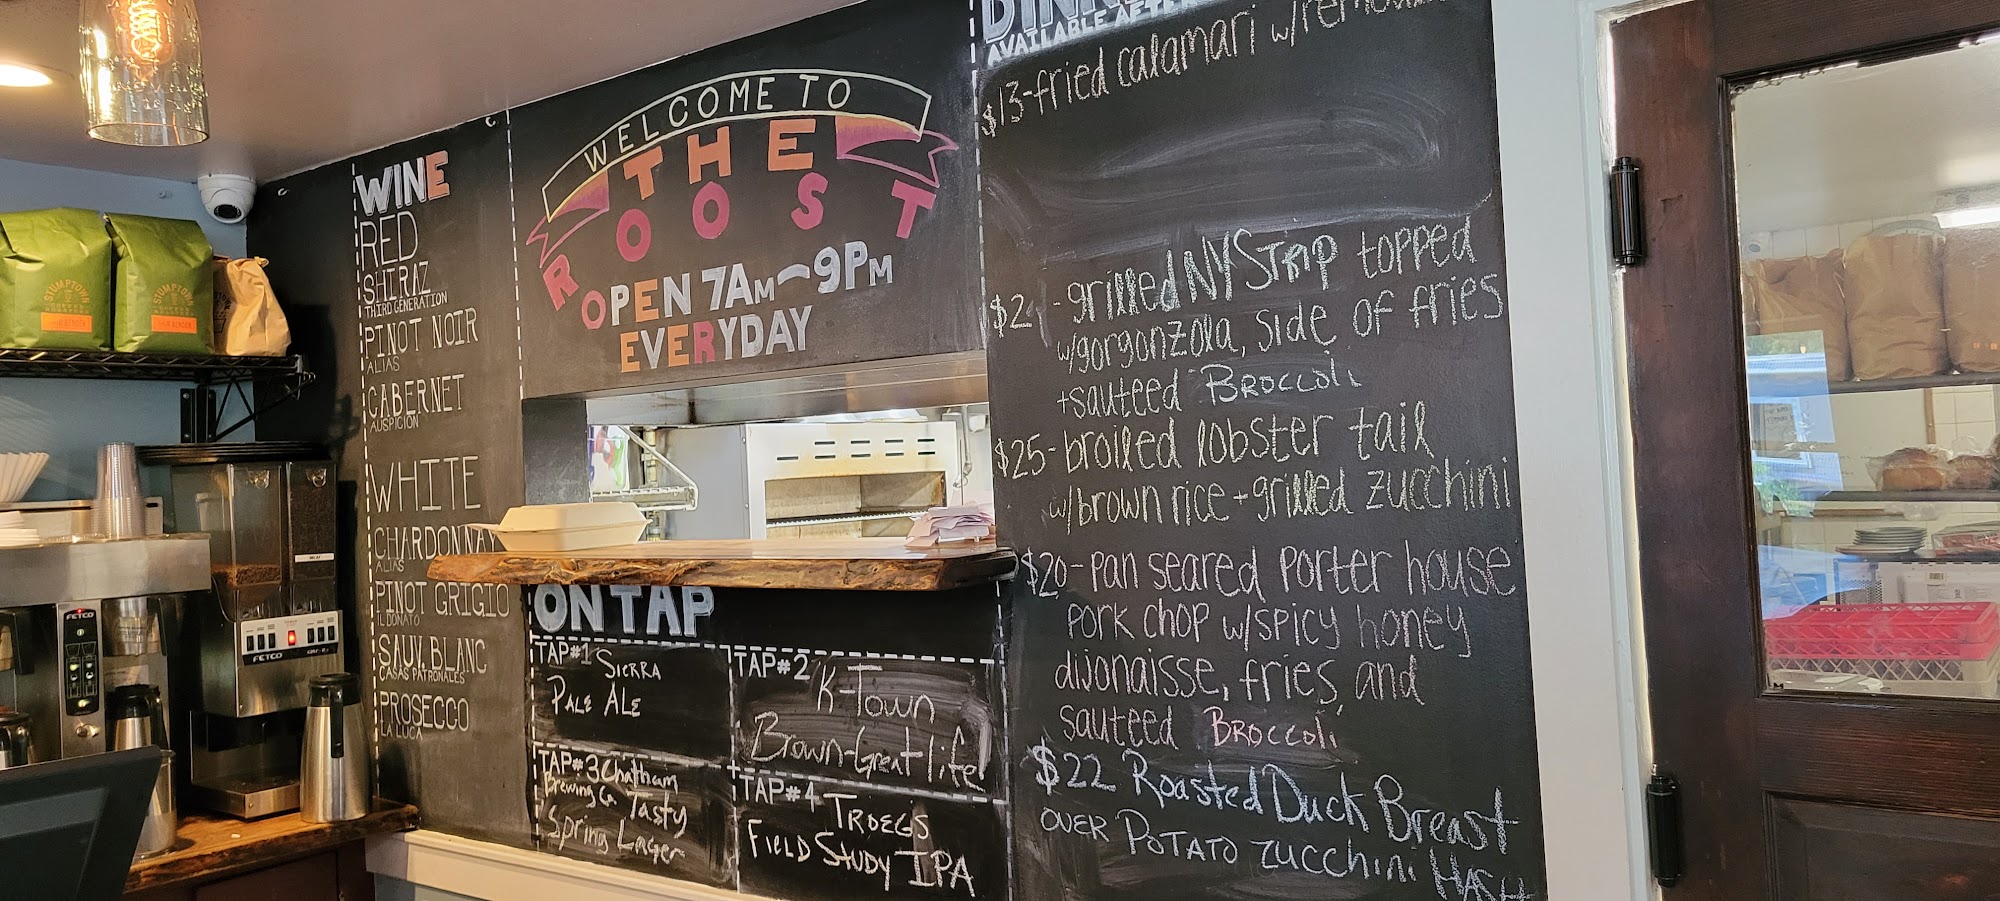 WINE
RED
SHIRAZ
THIRD GENERATION
PINOT NOIR
ALIAS
CABERNET
AUSPICION
WHITE
CHARDONNAY
ALIAS
PINOT GRIGIO
IL DONATO
SAUV. BLANC
CASAS PATRONALES
PROSECCO
LA LUCA
WELCOME TO
THE
ROOST
OPEN 7AM-9PM
EVERYDAY
ON TAP
TAP#1 SIERRA
PALE ALE
TAP#2
K-Town
Brown-Great life
TAP#3 Chatham
Brewing Co. Tasty
Spring Lager
TAP#4 TROEGS
FIELD STUDY IPA
AVAILABLE AFTER
$13-fried calamari w/
-grilled NY STRIP topped
w/gorgonzola, side of fries
+sauteed BROCCOLI
$25-broiled lobster tail
w/brown rice+grilled zucchini
$20-pan seared porter house
pork chop w/spicy honey
dijonaisse, fries, and
sauteed BROCCOLI
$22 Roasted Duck Breast
OVER POTATO zucchini HASH
STUMPTOWN
STUMPTOWN
FETCO
FETCO